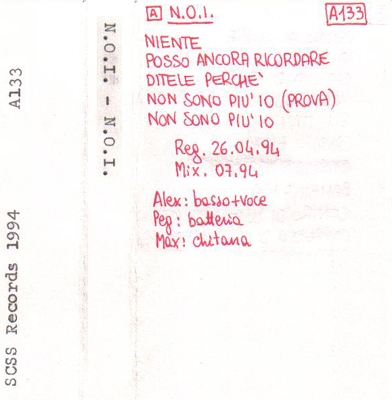 A133
SCSS Records 1994
N.O.I. - N.O.I.
A N.O.I.
A133
NIENTE
POSSO ANCORA RICORDARE
DITELE PERCHE'
NON SONO PIU' IO (PROVA)
NON SONO PIU' IO
Reg. 26.04.94
Mix. 07.94
Alex: basso+voce
Peg: batteria
Max: chitarra